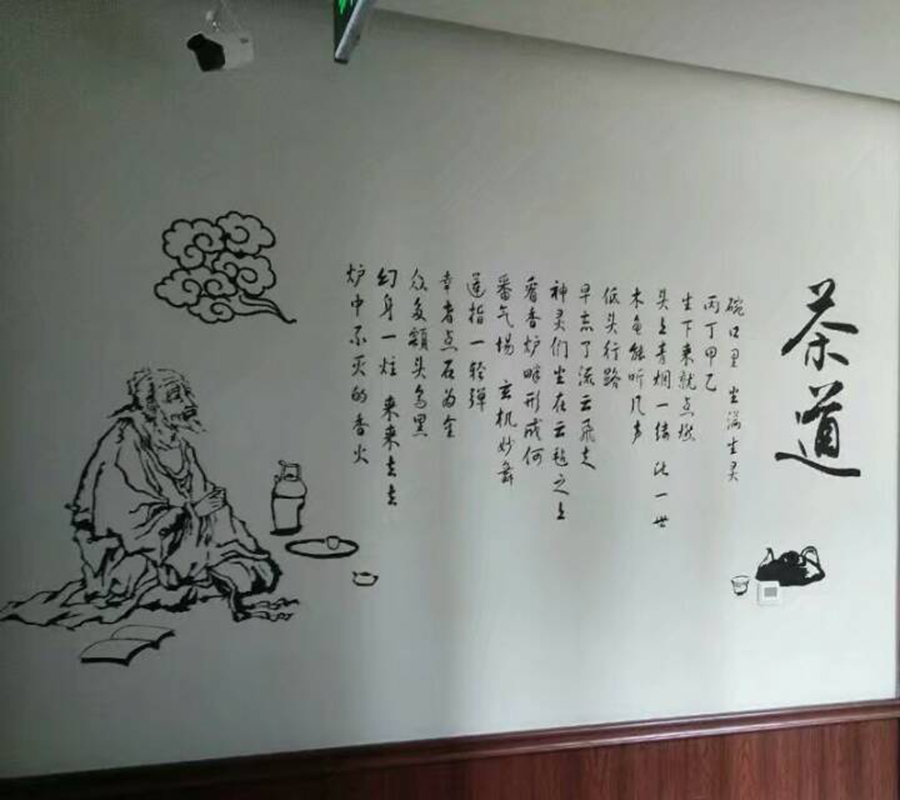 茶道
碗口里 坐满生灵
丙丁甲乙
生下来就点燃
头上青烟一缕 此一世
木鱼能听几声
低头行路
早忘了流云飞走
神灵们坐在云毡之上
看香炉畔形成何
番气场 玄机妙舞
莲指一轻弹
幸者点石为金
众多额头乌黑
幻身一炷 来来去去
炉中不灭的香火